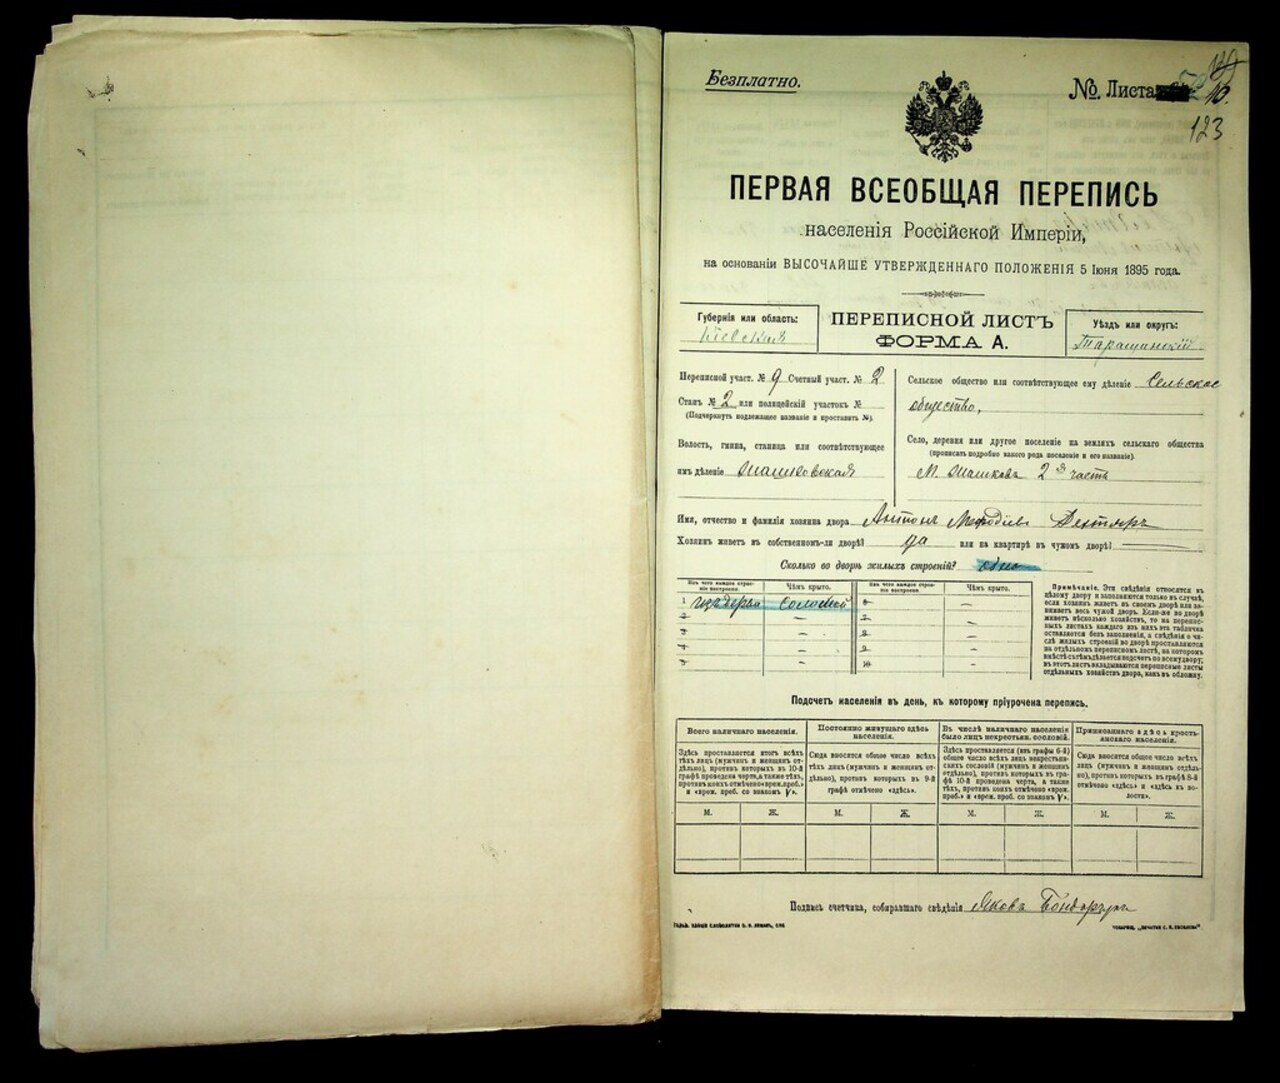 Безплатно.
№. Листа
10.
123
ПЕРВАЯ ВСЕОБЩАЯ ПЕРЕПИСЬ
населенія Россійской Имперіи,
на основаніи ВЫСОЧАЙШЕ УТВЕРЖДЕННАГО ПОЛОЖЕНІЯ 5 Іюня 1895 года.
Губернія или область:
Кіевская
ПЕРЕПИСНОЙ ЛИСТЪ
ФОРМА А.
Уѣздъ или округъ:
Таращинскій
Переписной участ. № 9 Счетный участ. № 2
Станъ № 2 или полицейскій участокъ №
(Подчеркнуть подлежащее названіе и проставить №).
Волость, гмина, станица или соотвѣтствующее
имъ дѣленіе
Сельское общество или соотвѣтствующее ему дѣленіе Сельское
общество,
Село, деревня или другое поселеніе на земляхъ сельскаго общества
(прописать подробно какого рода поселеніе и его названіе).
М. 2я часть
Имя, отчество и фамилія хозяина двора Антонъ Мефодіевъ Дехтяръ
Хозяинъ живетъ въ собственномъ-ли дворѣ? да или на квартирѣ въ чужомъ дворѣ?
Сколько во дворѣ жилыхъ строеній? одно
Изъ чего каждое строеніе построено. Чѣмъ крыто. Изъ чего каждое строеніе построено. Чѣмъ крыто.
1 изъ дерева соломой 6
2 7
3 8
4 9
5 10
Примѣчаніе. Эти свѣдѣнія относятся къ
цѣлому двору и заполняются только въ случаѣ,
если хозяинъ живетъ въ своемъ дворѣ или занимаетъ
весь чужой дворъ. Если-же во дворѣ
живетъ нѣсколько хозяйствъ, то на переписныхъ
листахъ каждаго изъ нихъ эта табличка
оставляется безъ заполненія, а свѣдѣнія о числѣ
жилыхъ строеній во дворѣ проставляются
на отдѣльномъ переписномъ листѣ, на которомъ
вмѣстѣ съ тѣмъ дѣлается подсчетъ по всему двору;
въ этотъ листъ вкладываются переписные листы
отдѣльныхъ хозяйствъ двора, какъ въ обложку.
Подсчетъ населенія въ день, къ которому пріурочена перепись.
Всего наличнаго населенія.
Здѣсь проставляется итогъ всѣхъ
тѣхъ лицъ (мужчинъ и женщинъ отдѣльно),
противъ которыхъ въ 10-й
графѣ проведена черта, а также тѣхъ,
противъ коихъ отмѣчено «врем. преб.»
и «врем. проб. со знакомъ V».
Постоянно живущаго здѣсь
населенія.
Сюда вносится общее число всѣхъ
тѣхъ лицъ (мужчинъ и женщинъ отдѣльно),
противъ которыхъ въ 9-й
графѣ отмѣчено «здѣсь».
Въ числѣ наличнаго населенія
было лицъ некрестьян. сословій.
Здѣсь проставляется (изъ графы 6-й)
общее число всѣхъ лицъ некрестьянскихъ
сословій (мужчинъ и женщинъ
отдѣльно), противъ которыхъ въ графѣ
10-й проведена черта, а также
тѣхъ, противъ коихъ отмѣчено «врем.
преб.» и «врем. проб. со знакомъ V».
Приписаннаго здѣсь крестьянскаго
населенія.
Сюда вносится общее число всѣхъ
лицъ (мужчинъ и женщинъ отдѣльно),
противъ которыхъ въ графѣ 8-й
отмѣчено «здѣсь» и «здѣсь въ волости».
М. Ж. М. Ж. М. Ж. М. Ж.
Подпись счетчика, собиравшаго свѣдѣнія Яковъ